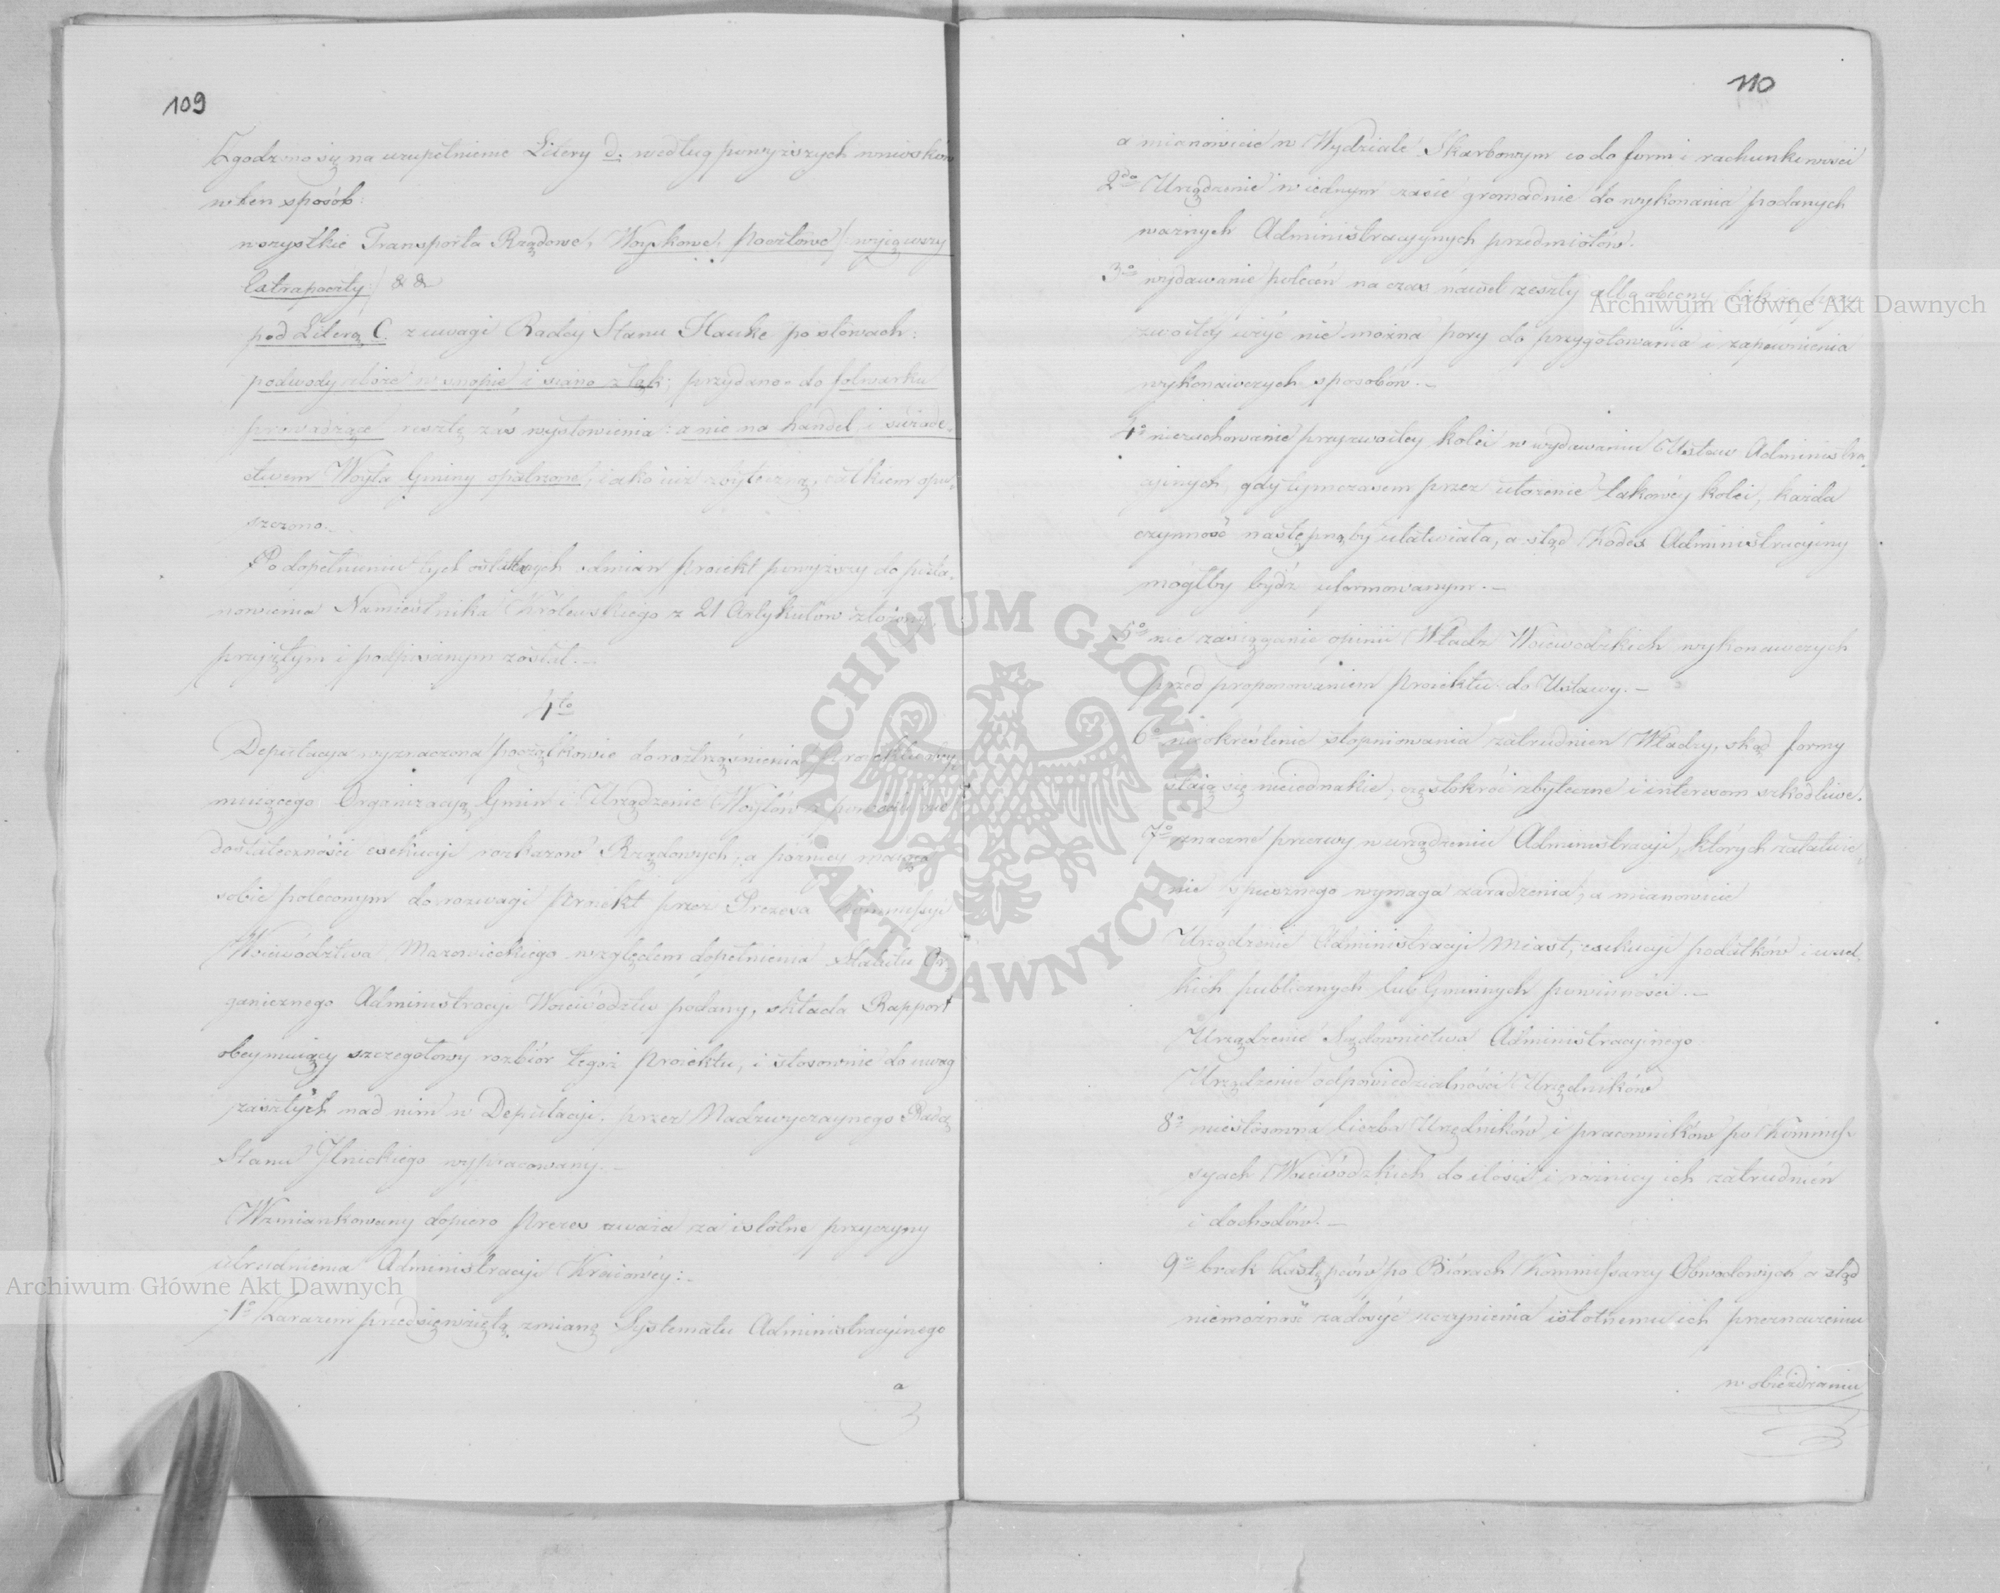 109
Zgodzono się na uzupełnienie Litery d. według powyższych wniosków
w ten sposób:
wszystkie Transporta Rządowe, Woyskowe, Pocztowe /: wyjąwszy
Extrapoczty :/ & &
pod Literą C. z uwagi Radcy Stanu Hauke po słowach:
podwody zboże w snopie i siano z łąk; przydano do folwarku
prowadzące resztę zaś wysłowienia: a nie na handel, i świade-
ctwem Woyta Gminy opatrzone, iako iuż zbyteczną, całkiem opu-
szczono.
Po dopełnieniu tych ostatnich odmian Proiekt powyższy do posta-
nowienia Namiestnika Królewskiego z 21 Artykułów złożony,
przyjętym i podpisanym został.—
4to
Deputacja wyznaczona początkowie do roztrząśnienia Proiektu
muiącego Organizacją Gmin i Urządzenie Woytów z powodu
dostateczności exekucji rozkazów Rządowych, a późniey maiąca
sobie poleconym do rozwagi Proiekt przez Prezesa Kommissyi
Woiewództwa Mazowieckiego względem dopełnienia Statutu Or-
ganicznego Administracji Woiewództw podany, składa Rapport
obeymuiący szczegółowy rozbiór tegoż Proiektu, i stosownie do uwag
zaszłych nad nim w Deputacji, przez Nadzwyczaynego Radcę
Stanu Ilnickiego wypracowany.—
Wzmiankowany dopiero Prezes uważa za istotne przyczyny
utrudnienia Administracji Kraiowéy:-
1o Zarazem przedsięwziętą zmianę Systematu Administracyinego
a
110
a mianowicie w Wydziale Skarbowym co do form i rachunkowości
2do Urządzenie w iednym czasie gromadnie do wykonania podanych
ważnych Administracyjnych przedmiotów.
3o wydawanie poleceń na czas nawet zeszły albo obecny
zwoitéy użyć nie można pory do przygotowania i zapewnienia
wykonawczych sposobów.—
4o niezachowanie przyzwoitey kolei w wydawaniu Ustaw Administra-
cyjnych, gdy tymczasem przez ułożenie takowéy kolei, każda
czynność następną by ułatwiała, a stąd Kodex Administracyiny
mógłby bydź uformowanym.—
5o nie zasięganie opinii Władz Woiewódzkich wykonawczych
przed proponowaniem Proiektu do Ustawy.—
6o nieokreślenie stopniowania zatrudnień Władzy, skąd formy
staią się nieiednakie, częstokroć zbyteczne i interesom szkodliwe.
7o znaczne przerwy w urządzeniu Administracji, których załatwie-
nie spiesznego wymaga zaradzenia, a mianowicie
Urządzenie Administracji Miast, exekucji podatków i wszel-
kich publicznych lub Gminnych powinności.—
Urządzenie Sądownictwa Administracyinego.
Urządzenie odpowiedzialności Urzędników
8o niestosowna liczba Urzędników i pracowników po Kommis-
syach Woiewódzkich do ilości i różnicy ich zatrudnień
i dochodów.—
9o brak Zastępców po Biórach Kommissarzy Obwodowych a stąd
niemożność zadosyć uczynienia istotnemu ich przeznaczeniu
w obieżdżaniu
ARCHIWUM GŁÓWNE AKT DAWNYCH
Archiwum Główne Akt Dawnych
Archiwum Główne Akt Dawnych